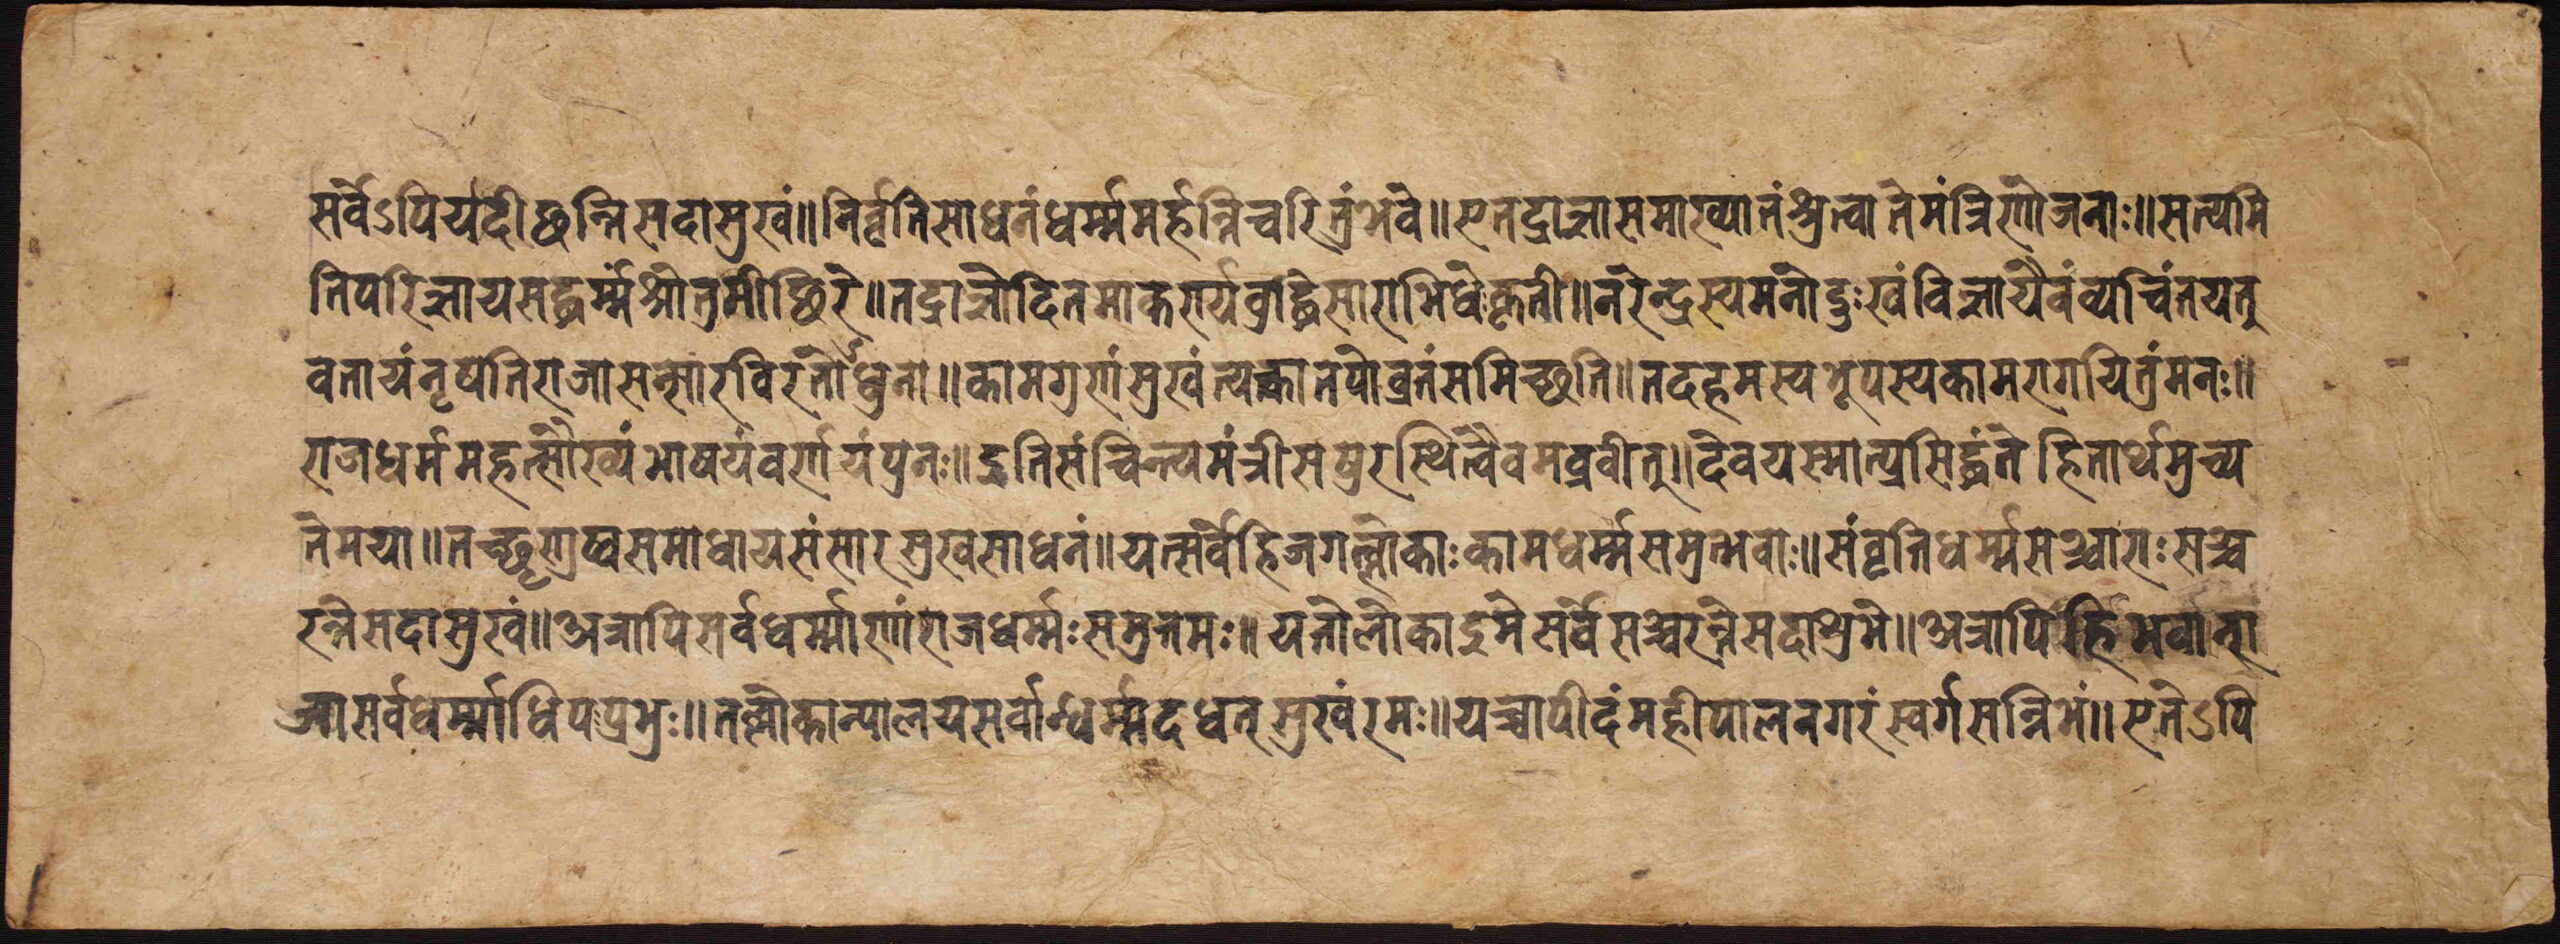 सर्वेऽपि यदीछन्ति सदा सुखं॥ निर्वृतिसाधनं धर्म्ममर्हन्ति चरितुं भवे॥ एतद्राज्ञा समाख्यातं श्रुत्वा ते मंत्रिणो जनाः॥ सत्यमि
ति परिज्ञाय सद्धर्म्मं श्रोतुमीछिरे॥ तद्राज्ञोदितमाकर्ण्य वृद्धिसाराभिधे कृती॥ नरेन्द्रस्य मनोद्दुःखं विज्ञायैवं व्यचिंतयत्
वतायं नृपति राजा सन्सारविरतोऽधुना॥ कामगुणं सुखं त्यक्त्वा तपोव्रतं समिच्छति॥ तदहमस्य भूपस्य कामरागयितुं मनः॥
राजधर्ममहत्सौख्यं भाषयं वर्णयं पुनः॥ इति संचिन्त्य मंत्री स पुर स्थित्वैवमब्रवीत्॥ देव यस्मात्प्रसिद्धं ते हितार्थमुच्य
ते मया॥ तच्छृणुष्व समाधाय संसारसुखसाधनं॥ यत्सर्वे हि जगल्लोकाः कामधर्म्मसमुत्भवाः॥ संवृतिधर्म्मसञ्चाराः सञ्च
रन्ते सदा सुखं॥ अत्रापि सर्वधर्म्माणां राजधर्म्मः समुत्तमः॥ यतो लोका इमे सर्वे सञ्चरन्ते सदा शुभे॥ अत्रापि हि भवान् रा
जा सर्वधर्म्माधिपप्रभुः॥ तल्लोकान्पालय सर्वान्धर्म्मं दधत् सुखं रमः॥ यच्चापीदं महीपाल नगरं स्वर्गसन्निभं॥ एतेऽपि